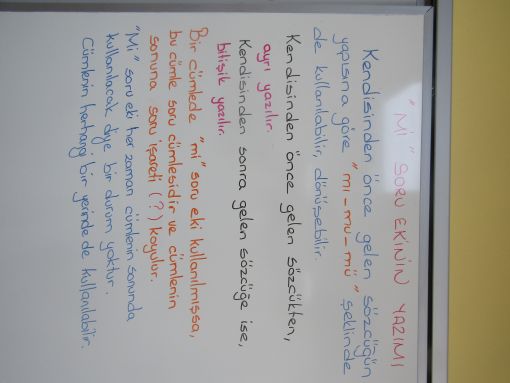 "Mİ" SORU EKİNİN YAZIMI
Kendisinden önce gelen sözcüğün
yapısına göre "mı-mu-mü" şeklinde
de kullanılabilir, dönüşebilir.
Kendisinden önce gelen sözcükten,
ayrı yazılır.
Kendisinden sonra gelen sözcüğe ise,
bitişik yazılır.
Bir cümlede "mi" soru eki kullanılmışsa,
bu cümle soru cümlesidir ve cümlenin
sonuna soru işareti (?) koyulur.
"Mi" soru eki her zaman cümlenin sonunda
kullanılacak diye bir durum yoktur.
Cümlenin herhangi bir yerinde de kullanılabilir.